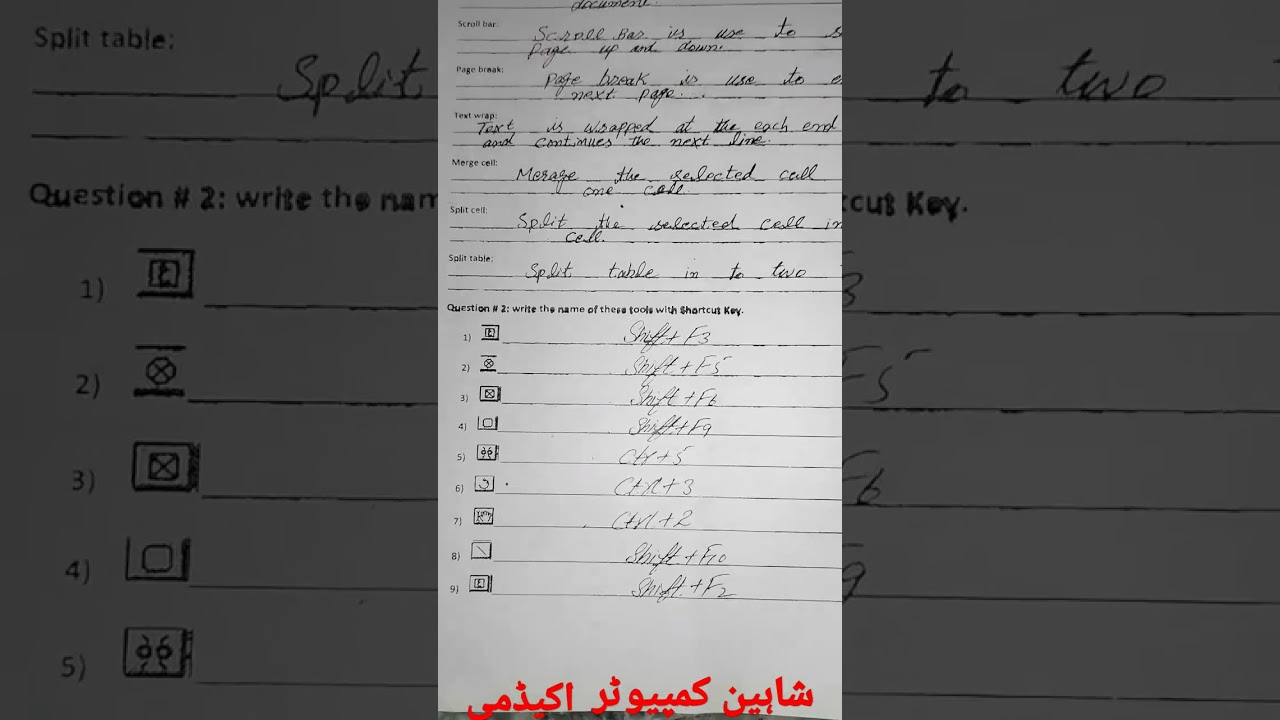 document.
Scroll bar:
Scroll Bar is use to s
Page up and down.
Page break:
Page break is use to e
next page..
Text wrap:
Text is wrapped at the each end
and continues the next line.
Merge cell:
Merage the selected cell
one cell.
Split cell:
Split the selected cell in
cell.
Split table:
Split table in to two
Question # 2: write the name of these tools with Shortcut Key.
1) Shift + F3
2) Shift + F5
3) Shift + F6
4) Shift + F9
5) Ctr + 5
6) Ctrl + 3
7) Ctrl + 2
8) Shift + F10
9) Shift + F2
شاہین کمپیوٹر اکیڈمی
Split table:
Split
to two
Question # 2: write the nam
tcut Key.
1)
3
2)
F5
3)
F6
4)
9
5)